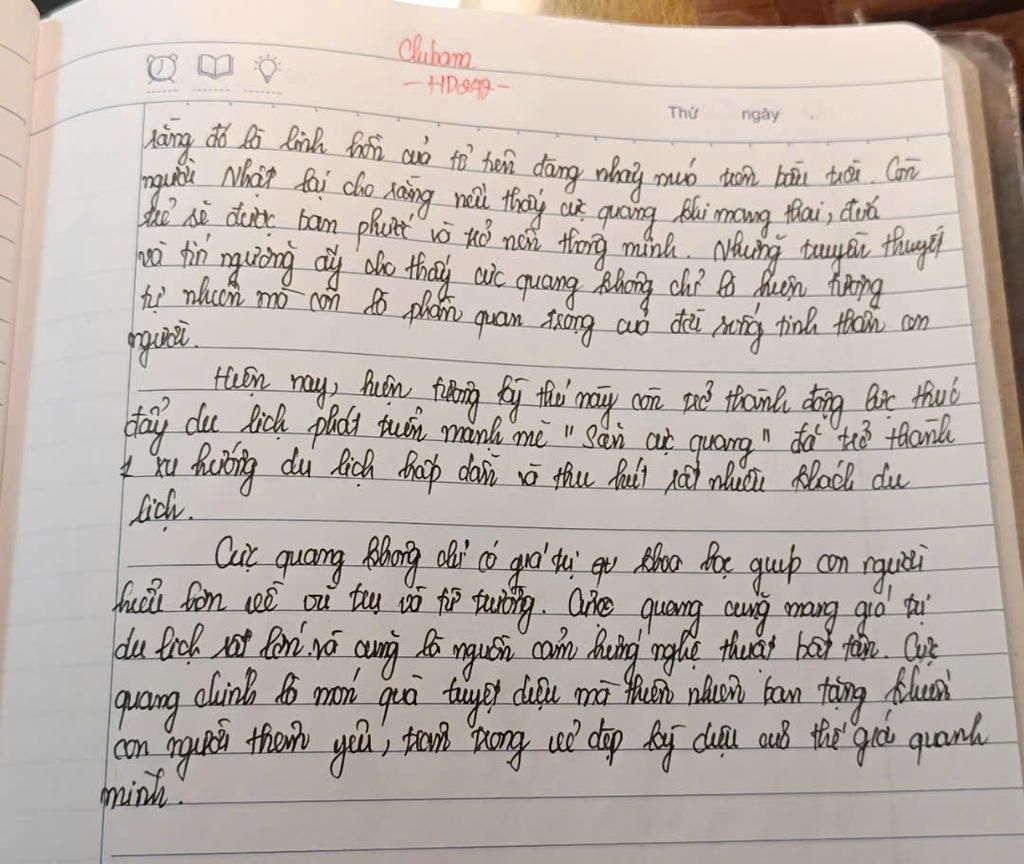 Thứ ngày
rằng đó là linh hồn của tổ tiên đang nhảy múa trên bầu trời. Còn
người Nhật lại cho rằng nếu thấy cực quang khi mang thai, đứa
trẻ sẽ được ban phước và trở nên thông minh. Những truyền thuyết
và tín ngưỡng ấy cho thấy cực quang không chỉ là hiện tượng
tự nhiên mà còn là phần quan trọng của đời sống tinh thần con
người.
Hiện nay, hiện tượng kỳ thú này còn trở thành động lực thúc
đẩy du lịch phát triển mạnh mẽ "Săn cực quang" đã trở thành
1 xu hướng du lịch hấp dẫn và thu hút rất nhiều khách du
lịch.
Cực quang không chỉ có giá trị khoa học giúp con người
hiểu hơn về vũ trụ và từ trường. Cực quang cũng mang giá trị
du lịch rất lớn và cũng là nguồn cảm hứng nghệ thuật bất tận. Cực
quang chính là món quà tuyệt diệu mà thiên nhiên ban tặng khiến
con người thêm yêu, trân trọng vẻ đẹp kỳ diệu của thế giới quanh
mình.